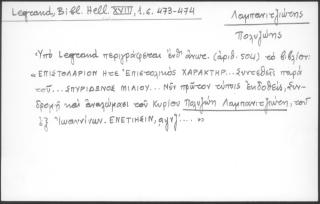 Legrand, Bibl. Hell. XVIII, 1. σ. 473-474
Λαμπανιτζιώτης
Πολυζώης
Ὑπὸ Legrand περιγράφεται ἔνθ' ἀνωτ. (ἀριθ. 504) τὸ βιβλίον:
«ΕΠΙΣΤΟΛΑΡΙΟΝ Ητε Ἐπιστολικὸς ΧΑΡΑΚΤΗΡ... Συντεθεὶς παρὰ
τοῦ... ΣΠΥΡΙΔΩΝΟΣ ΜΙΛΙΟΥ... Νῦν πρῶτον τύποις ἐκδοθεὶς, Συν-
δρομῇ καὶ ἀναλώμασι τοῦ Κυρίου Πολυζώη Λαμπανιτζιώτη, τοῦ
ἐξ Ἰωαννίνων. ΕΝΕΤΙΗΣΙΝ, αψνζ'..... »